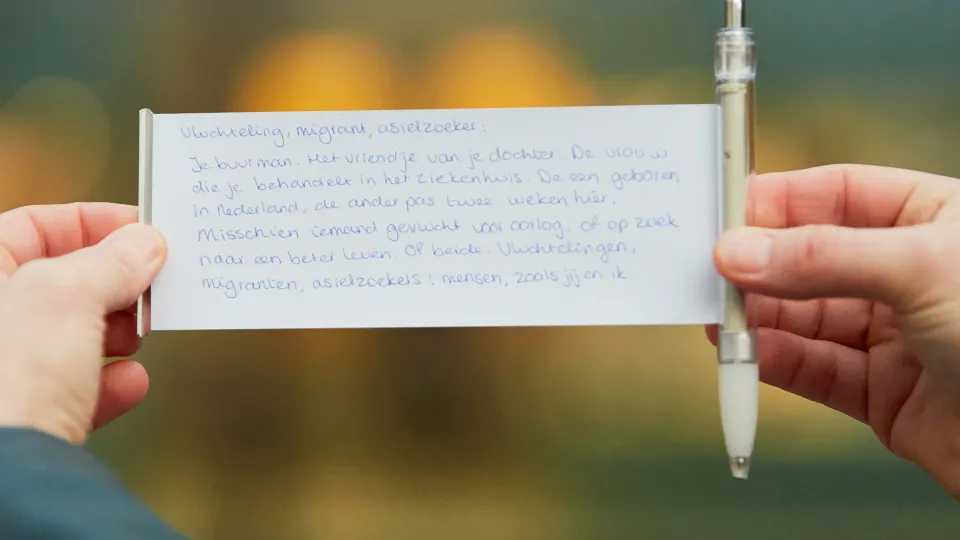 Vluchteling, migrant, asielzoeker:
Je buurman. Het vriendje van je dochter. De vrouw
die je behandelt in het ziekenhuis. De een geboren
in Nederland, de ander pas twee weken hier.
Misschien iemand gevlucht voor oorlog, of op zoek
naar een beter leven. Of beide. Vluchtelingen,
migranten, asielzoekers: mensen, zoals jij en ik